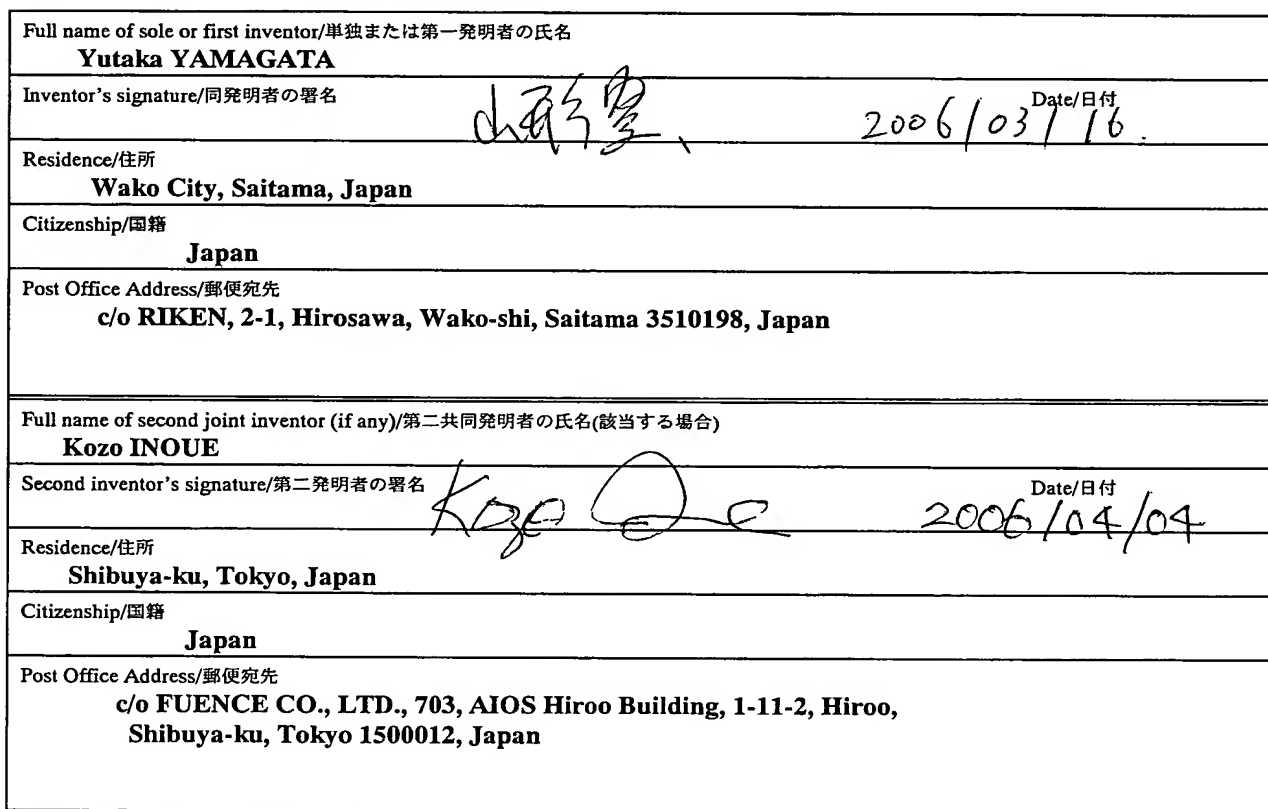 Full name of sole or first inventor/単独または第一発明者の氏名
Yutaka YAMAGATA
Inventor's signature/同発明者の署名 山形豊、 Date/日付 2006/03/16.
Residence/住所
Wako City, Saitama, Japan
Citizenship/国籍
Japan
Post Office Address/郵便宛先
c/o RIKEN, 2-1, Hirosawa, Wako-shi, Saitama 3510198, Japan
Full name of second joint inventor (if any)/第二共同発明者の氏名(該当する場合)
Kozo INOUE
Second inventor's signature/第二発明者の署名 Kozo Date/日付 2006/04/04
Residence/住所
Shibuya-ku, Tokyo, Japan
Citizenship/国籍
Japan
Post Office Address/郵便宛先
c/o FUENCE CO., LTD., 703, AIOS Hiroo Building, 1-11-2, Hiroo,
Shibuya-ku, Tokyo 1500012, Japan